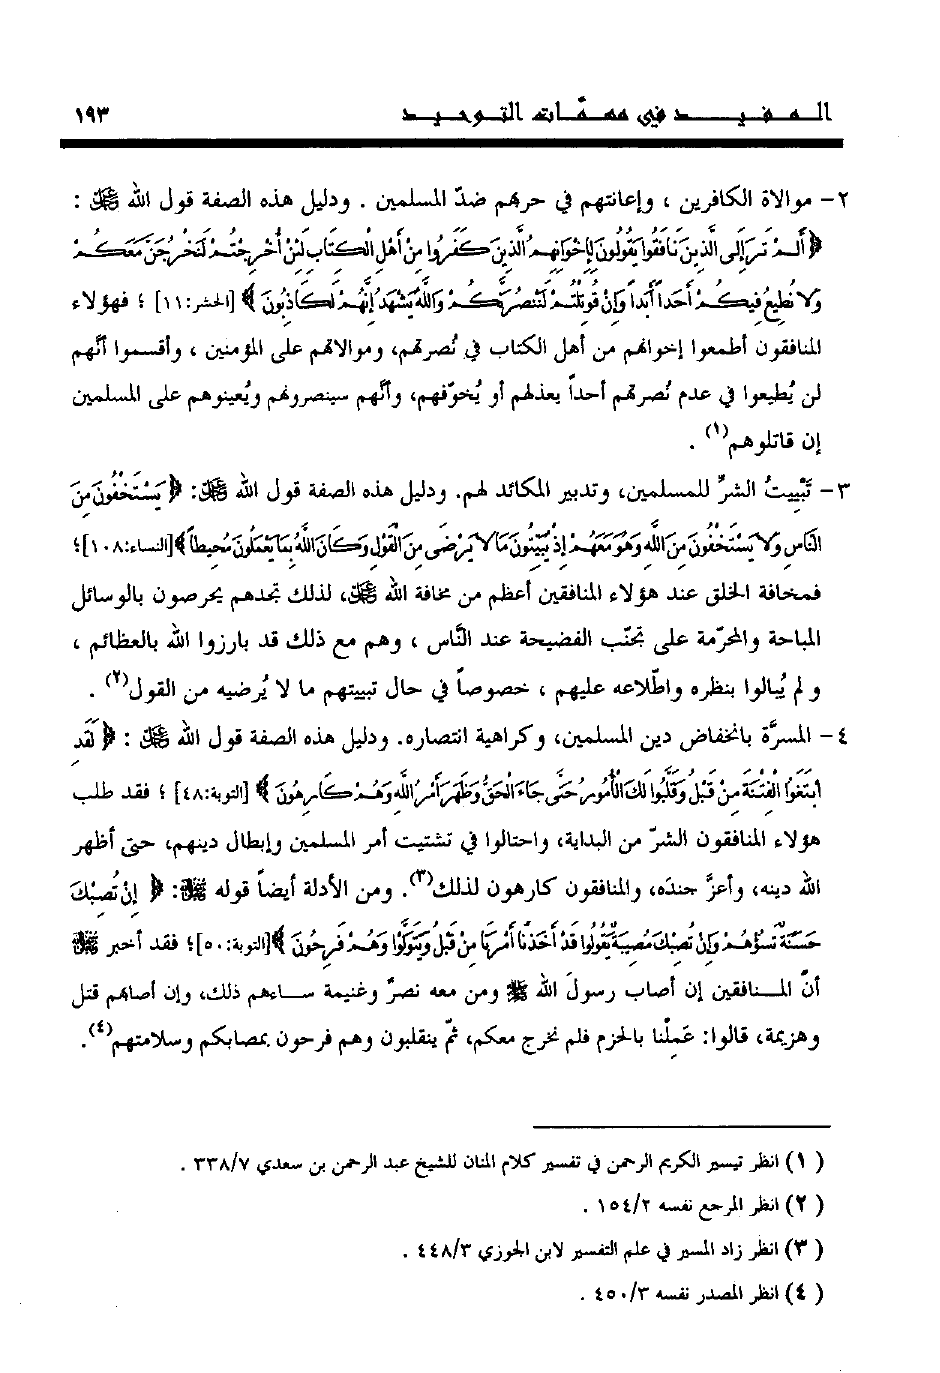 المفيد في مهمّات التوحيد ١٩٣
٢- موالاة الكافرين ، وإعانتهم في حربهم ضدّ المسلمين . ودليل هذه الصفة قول الله ﷻ :
﴿ أَلَمْ تَرَ إِلَى الَّذِينَ نَافَقُوا يَقُولُونَ لِإِخْوَانِهِمُ الَّذِينَ كَفَرُوا مِنْ أَهْلِ الْكِتَابِ لَئِنْ أُخْرِجْتُمْ لَنَخْرُجَنَّ مَعَكُمْ
وَلَا نُطِيعُ فِيكُمْ أَحَداً أَبَداً وَإِنْ قُوتِلْتُمْ لَنَنْصُرَنَّكُمْ وَاللَّهُ يَشْهَدُ إِنَّهُمْ لَكَاذِبُونَ ﴾ [الحشر:١١] ؛ فهؤلاء
المنافقون أطمعوا إخوانهم من أهل الكتاب في نُصرتهم، وموالاتهم على المؤمنين ، وأقسموا أنَّهم
لن يُطيعوا في عدم نُصرتهم أحداً يعذلهم أو يُخوّفهم، وأنَّهم سينصرونهم ويُعينوهم على المسلمين
إن قاتلوهم(١) .
٣- تَبْييتُ الشرِّ للمسلمين، وتدبير المكائد لهم. ودليل هذه الصفة قول الله ﷻ: ﴿ يَسْتَخْفُونَ مِنَ
النَّاسِ وَلَا يَسْتَخْفُونَ مِنَ اللَّهِ وَهُوَ مَعَهُمْ إِذْ يُبَيِّتُونَ مَا لَا يَرْضَى مِنَ الْقَوْلِ وَكَانَ اللَّهُ بِمَا يَعْمَلُونَ مُحِيطاً ﴾[النساء:١٠٨]؛
فمخافة الخلق عند هؤلاء المنافقين أعظم من مخافة الله ﷻ، لذلك تجدهم يحرصون بالوسائل
المباحة والمحرّمة على تجنّب الفضيحة عند النَّاس ، وهم مع ذلك قد بارزوا الله بالعظائم ،
ولم يُبالوا بنظره واطّلاعه عليهم ، خصوصاً في حال تبييتهم ما لا يُرضيه من القول(٢) .
٤- المسرَّة بانخفاض دين المسلمين، وكراهية انتصاره. ودليل هذه الصفة قول الله ﷻ : ﴿ لَقَدِ
ابْتَغَوُا الْفِتْنَةَ مِنْ قَبْلُ وَقَلَّبُوا لَكَ الْأُمُورَ حَتَّى جَاءَ الْحَقُّ وَظَهَرَ أَمْرُ اللَّهِ وَهُمْ كَارِهُونَ ﴾ [التوبة:٤٨] ؛ فقد طلب
هؤلاء المنافقون الشرّ من البداية، واحتالوا في تشتيت أمر المسلمين وإبطال دينهم، حتى أظهر
الله دينه، وأعزَّ جندَه، والمنافقون كارهون لذلك(٣). ومن الأدلة أيضاً قوله ﷻ: ﴿ إِنْ تُصِبْكَ
حَسَنَةٌ تَسُؤْهُمْ وَإِنْ تُصِبْكَ مُصِيبَةٌ يَقُولُوا قَدْ أَخَذْنَا أَمْرَنَا مِنْ قَبْلُ وَيَتَوَلَّوْا وَهُمْ فَرِحُونَ ﴾[التوبة:٥٠]؛ فقد أخبر ﷻ
أنّ المنافقين إن أصاب رسولَ الله ﷺ ومن معه نصرٌ وغنيمة ساءهم ذلك، وإن أصابهم قتل
وهزيمة، قالوا: عَمِلْنا بالحزم فلم نخرج معكم، ثمّ ينقلبون وهم فرحون بمصابكم وسلامتهم(٤).
(١) انظر تيسير الكريم الرحمن في تفسير كلام المنان للشيخ عبد الرحمن بن سعدي ٣٣٨/٧ .
(٢) انظر المرجع نفسه ١٥٤/٢ .
(٣) انظر زاد المسير في علم التفسير لابن الجوزي ٤٤٨/٣ .
(٤) انظر المصدر نفسه ٤٥٠/٣ .